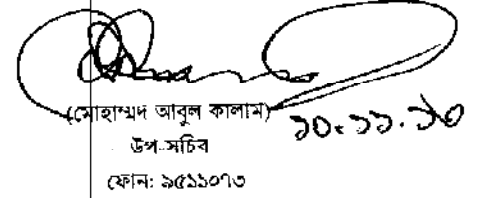 (মোহাম্মদ আবুল কালাম)
১০.১১.১০
উপ-সচিব
ফোন: ৯৫১১০৭৩